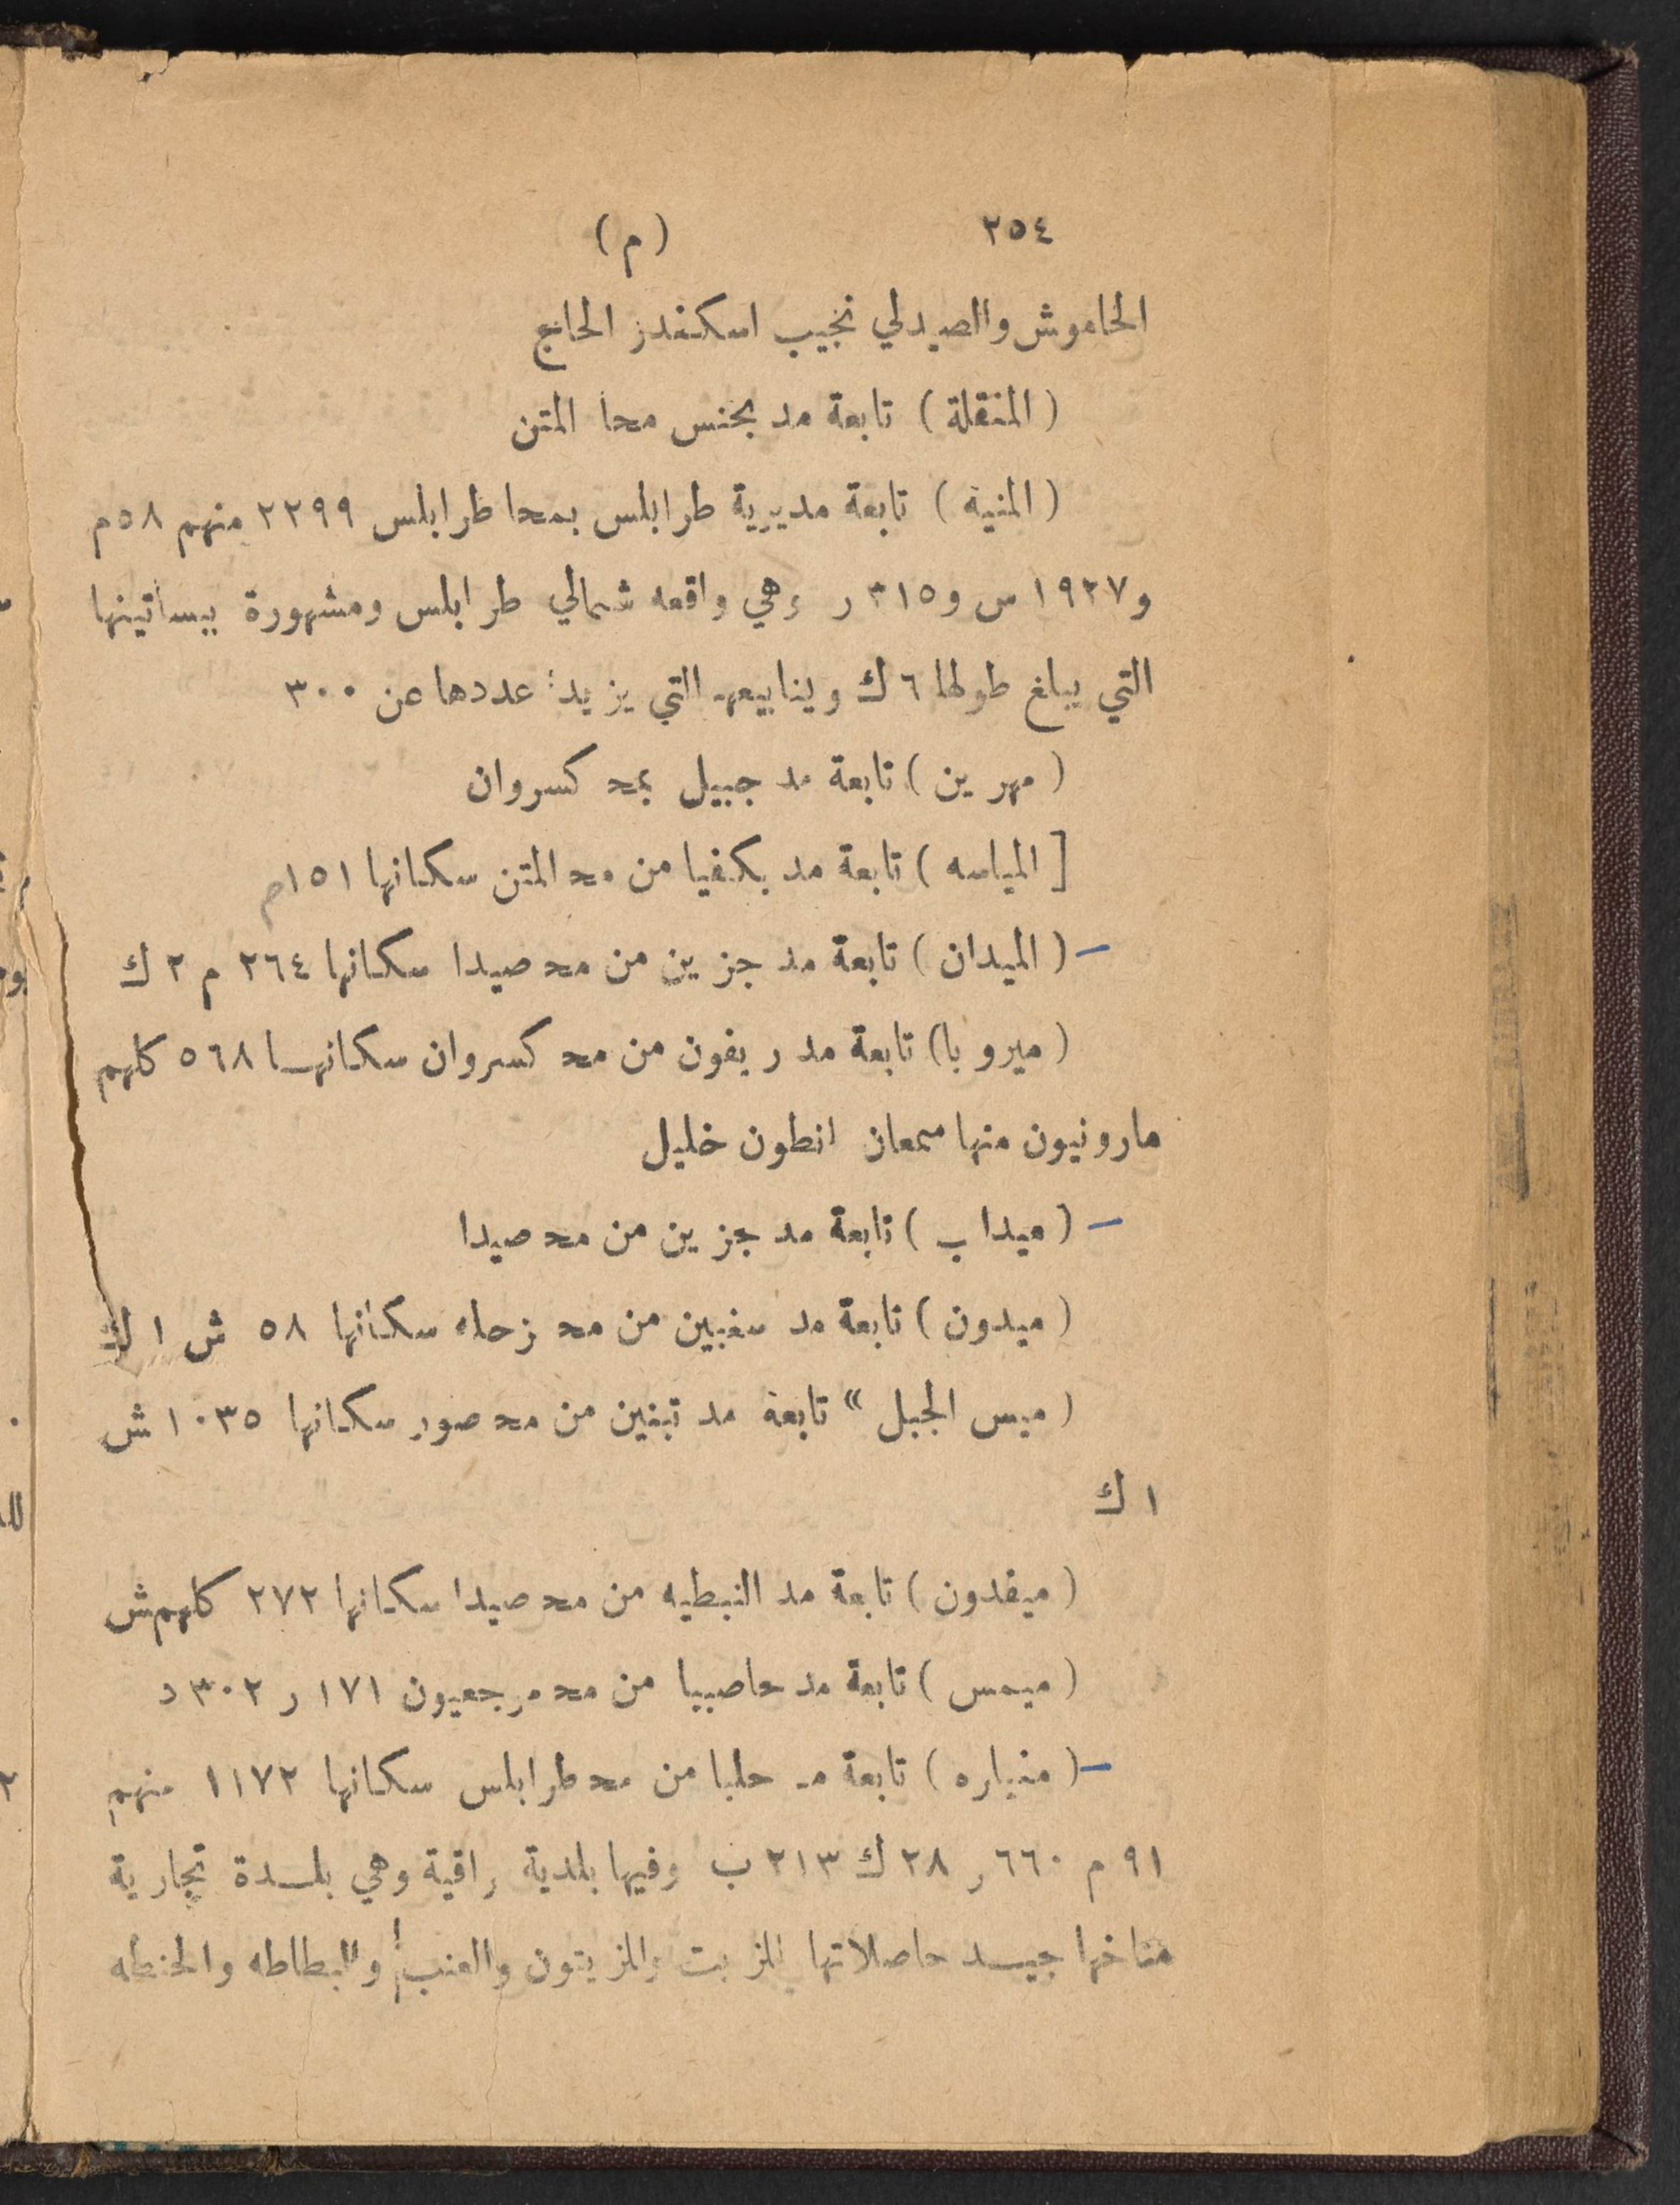 ٢٥٤ (م)
الحاموش والصيدلي نجيب اسكندر الحاج
(المنقلة) تابعة مد بحنس محا المتن
(المنية) تابعة مديرية طرابلس بمحا طرابلس ٢٢٩٩ منهم ٥٨م
و١٩٢٧ س و٣١٥ ر وهي واقعه شمالي طرابلس ومشهورة ببساتينها
التي يبلغ طولها ٦ ك وينابيعها التي يزيد عددها عن ٣٠٠
(مهرين) تابعة مد جبيل بمحد كسروان
[المياسه) تابعة مد بكفيا من محد المتن سكانها ١٥١م
– (الميدان) تابعة مد جزين من محد صيدا سكانها ٢٦٤ م ٢ ك
(ميروبا) تابعة مد ريفون من محد كسروان سكانهـا ٥٦٨ كلهم
مارونيون منها سمعان انطون خليل
– (ميداب) تابعة مد جزين من محد صيدا
(ميدون) تابعة مد سغبين من محد زحله سكانها ٥٨ ش ١ ك
(ميس الجبل» تابعة مد تبنين من محد صور سكانها ١٠٣٥ ش
١ ك
(ميفدون) تابعة مد النبطيه من محد صيدا سكانها ٢٧٢ كلهم ش
(ميمس) تابعة مد حاصبيا من محد مرجعيون ١٧١ ر ٣٠٢ د
– (منياره) تابعة مد حلبا من محد طرابلس سكانها ١١٧٢ منهم
٩١ م ٦٦٠ ر ٢٨ ك ٢١٣ ب وفيها بلدية راقية وهي بلـدة تجارية
مناخها جيـد حاصلاتها الزيت والزيتون والعنب والبطاطه والحنطه